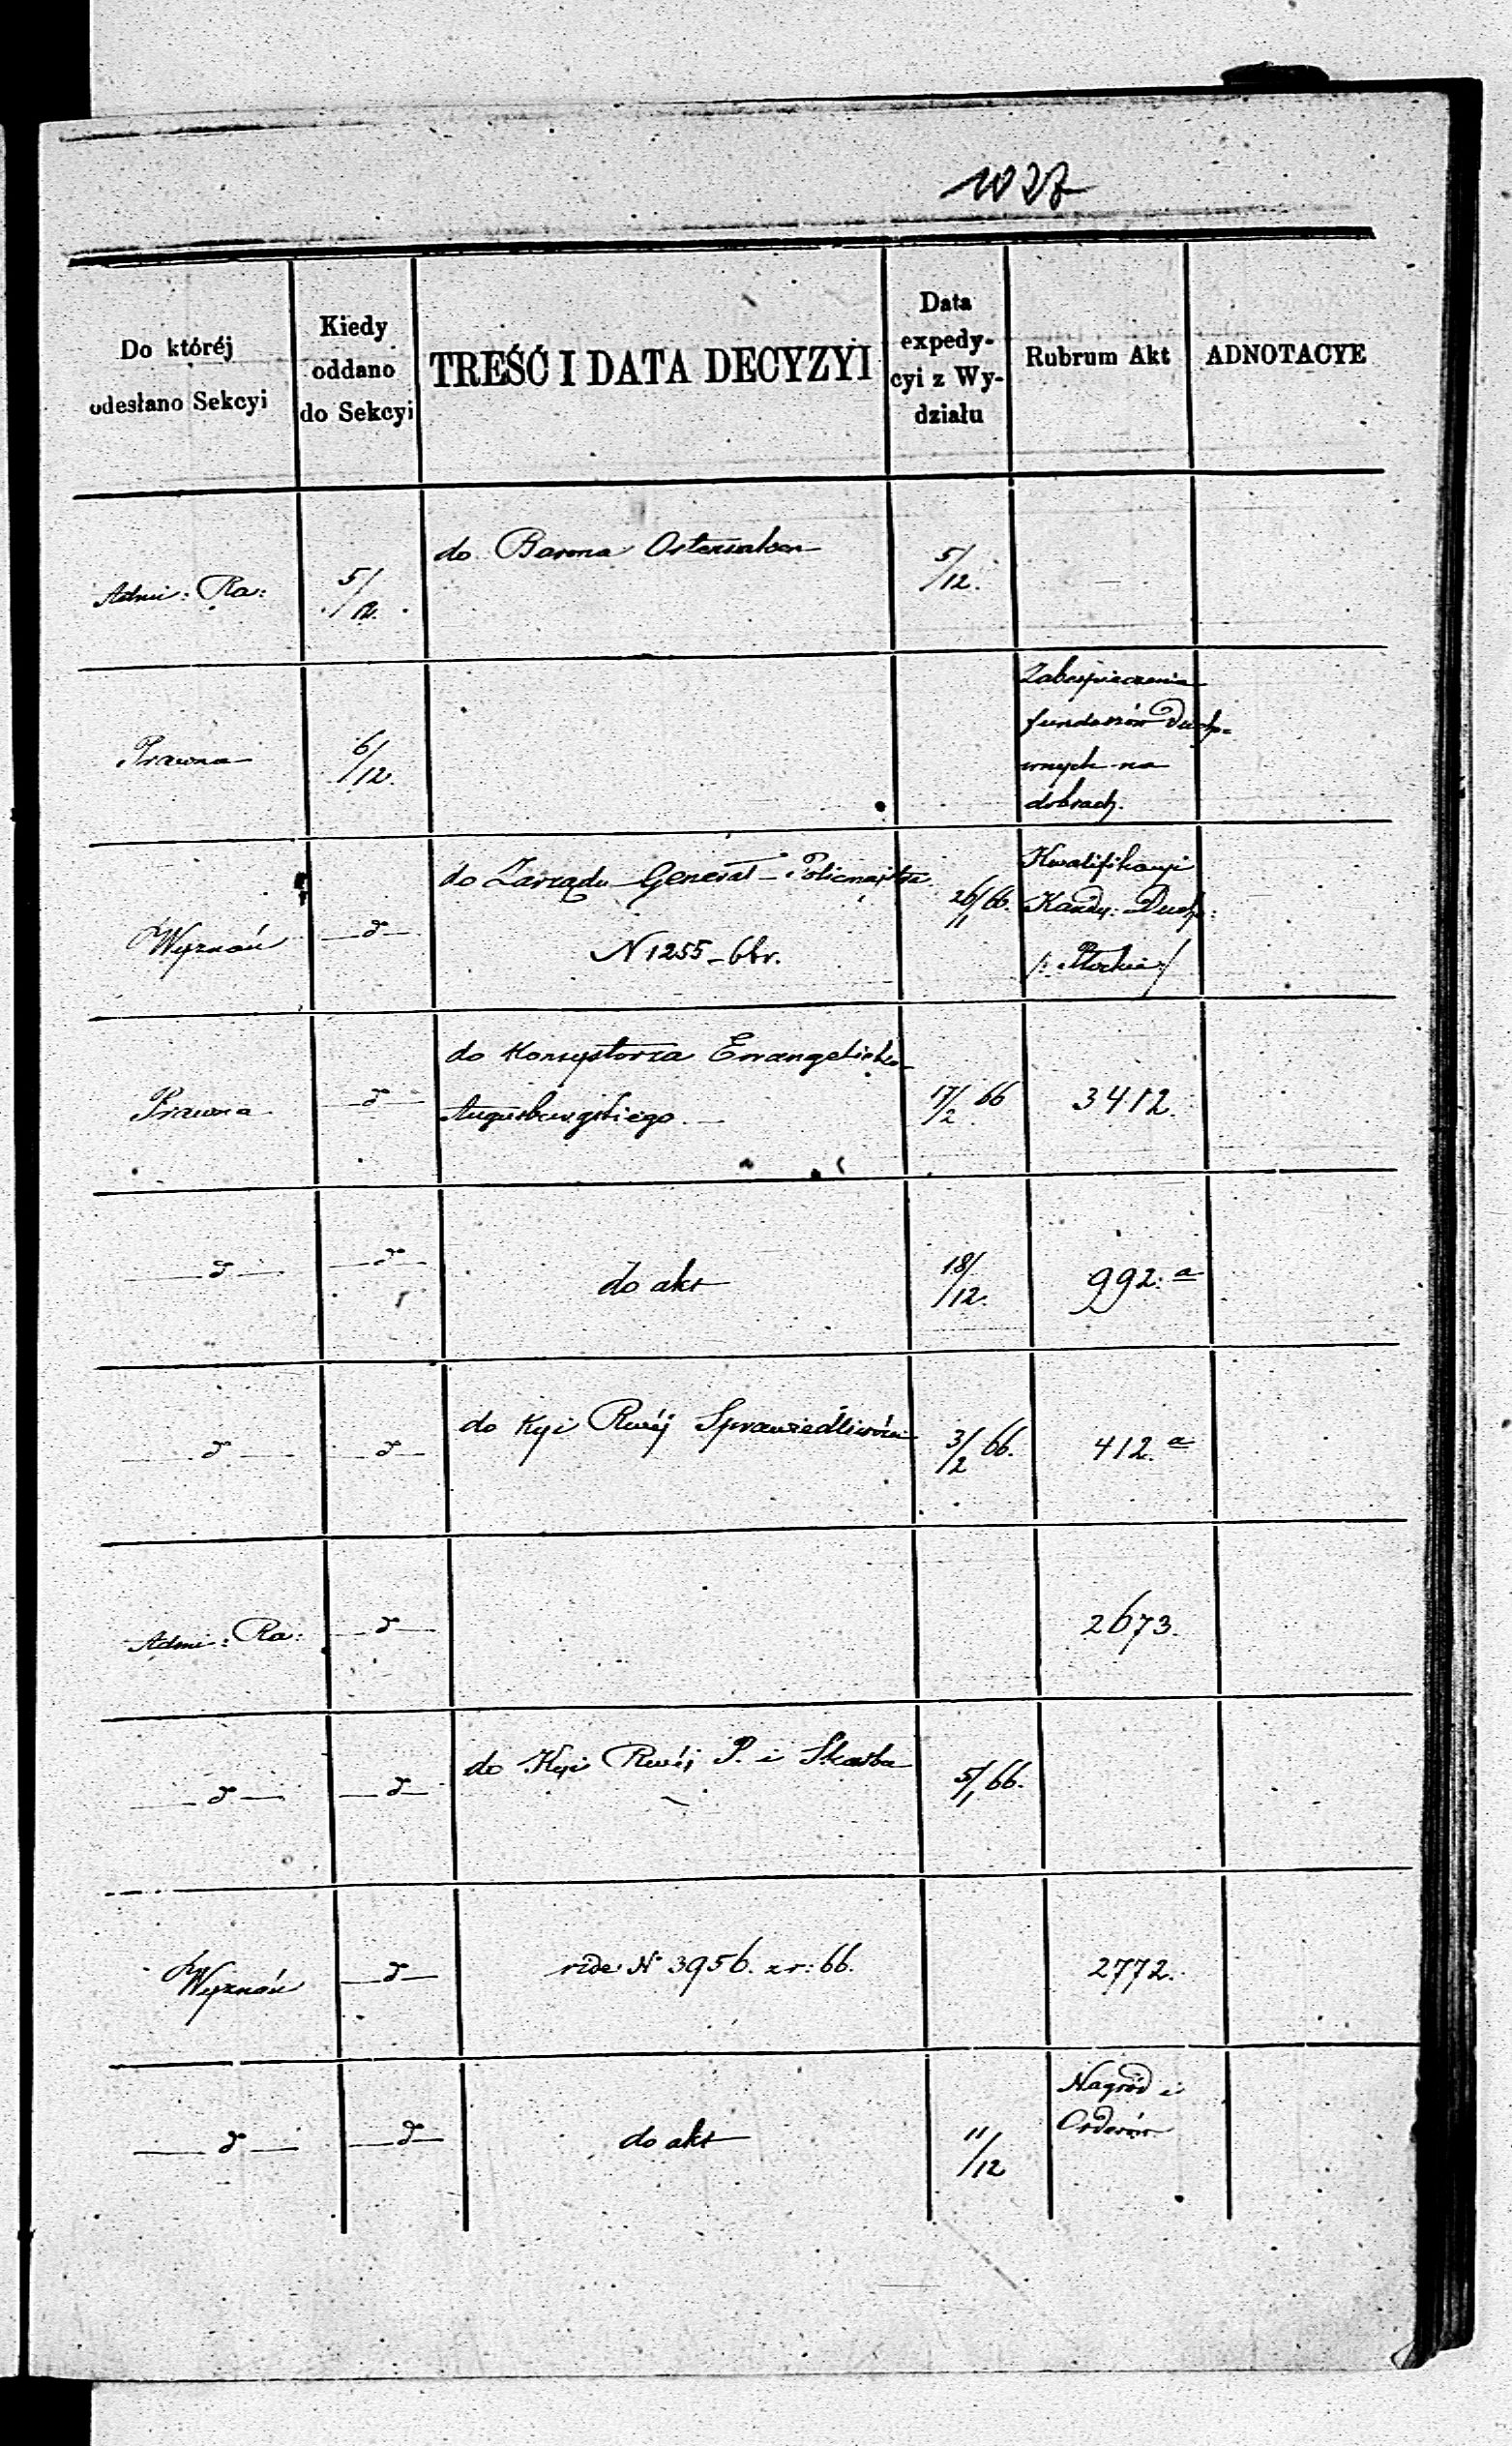 1027
Do któréj
odesłano Sekcyi
Kiedy
oddano
do Sekcyi
TREŚĆ I DATA DECYZYI
Data
expedy-
cyi z Wy-
działu
Rubrum Akt
ADNOTACYE
Admi: Ra:
5/12.
do Barona
5/12.
Prawna
6/12.
Zabezpieczenia
funduszów Ducho-
wnych na
dobrach.
Wyznań
d
do Zarządu General-Policmajstra
N 1255-66r.
26/1 66.
Kwalifikacyi
Kandy: Ducho:
/: Płockie :/
Prawna
d
do Konsystorza Ewangelicko-
Augusburgskiego.
17/2 66
3412.
d
d
do akt
18/12.
992. a
d
d
do Kyi Rwéj Sprawiedliwości
3/2 66.
412. a
Admi: Ra:
d
2673.
d
d
do Kyi Rwéj P. i Skarbu
5/1 66.
Wyznań
d
vide N 3956. z r: 66.
2772.
d
d
do akt
11/12
Nagród i
Orderów